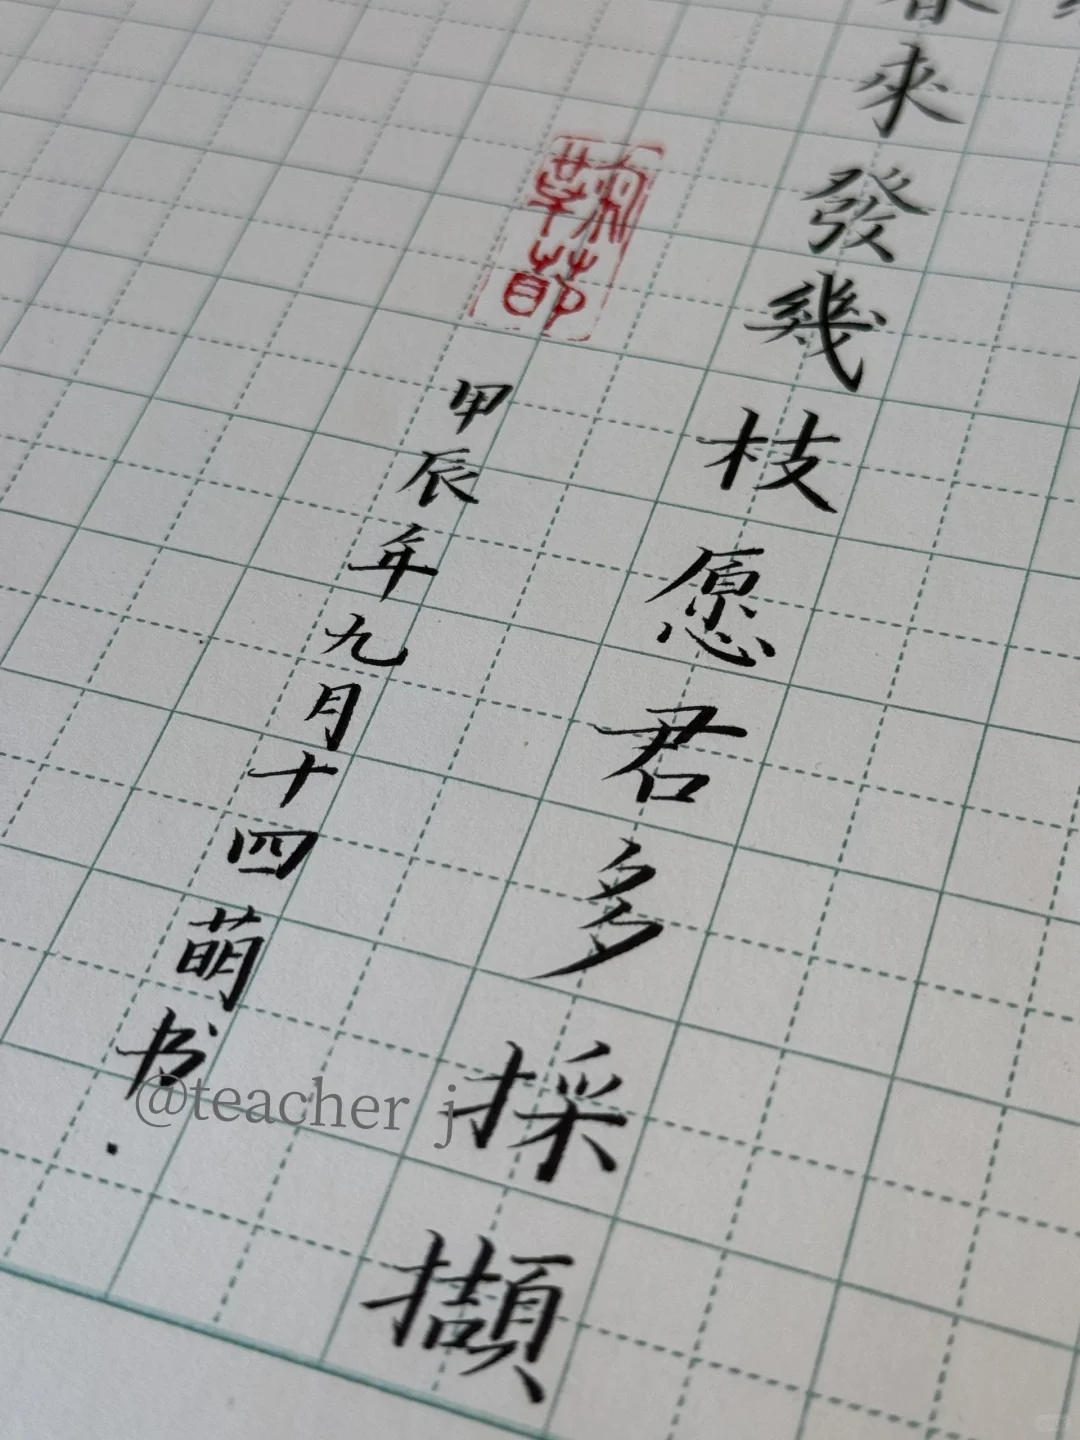 春來發幾枝愿君多採擷
甲辰年九月十四萌书
@teacher j